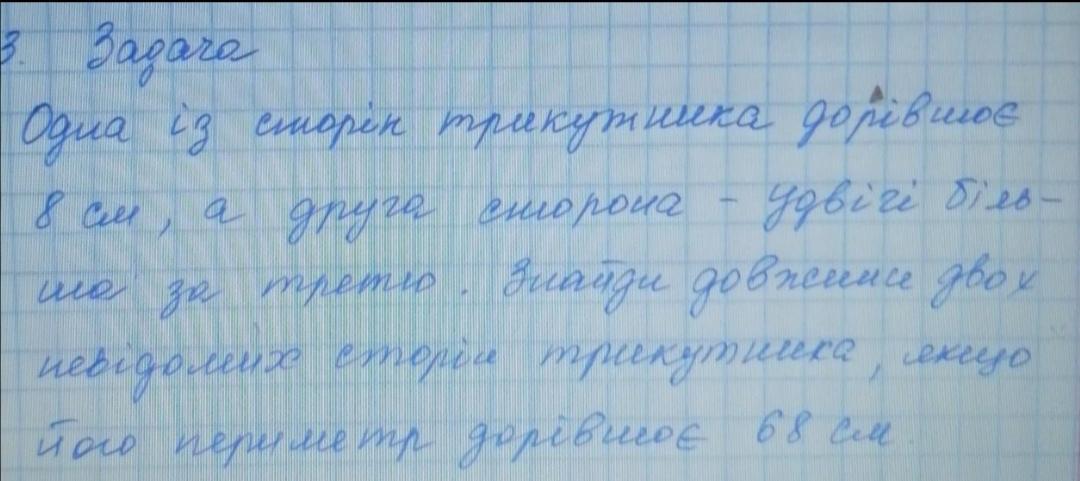 3. Задача
Одна із сторін трикутника дорівнює
8 см, а друга сторона - удвічі біль-
ша за третю. Знайди довжини двох
невідомих сторін трикутника, якщо
його периметр дорівнює 68 см.